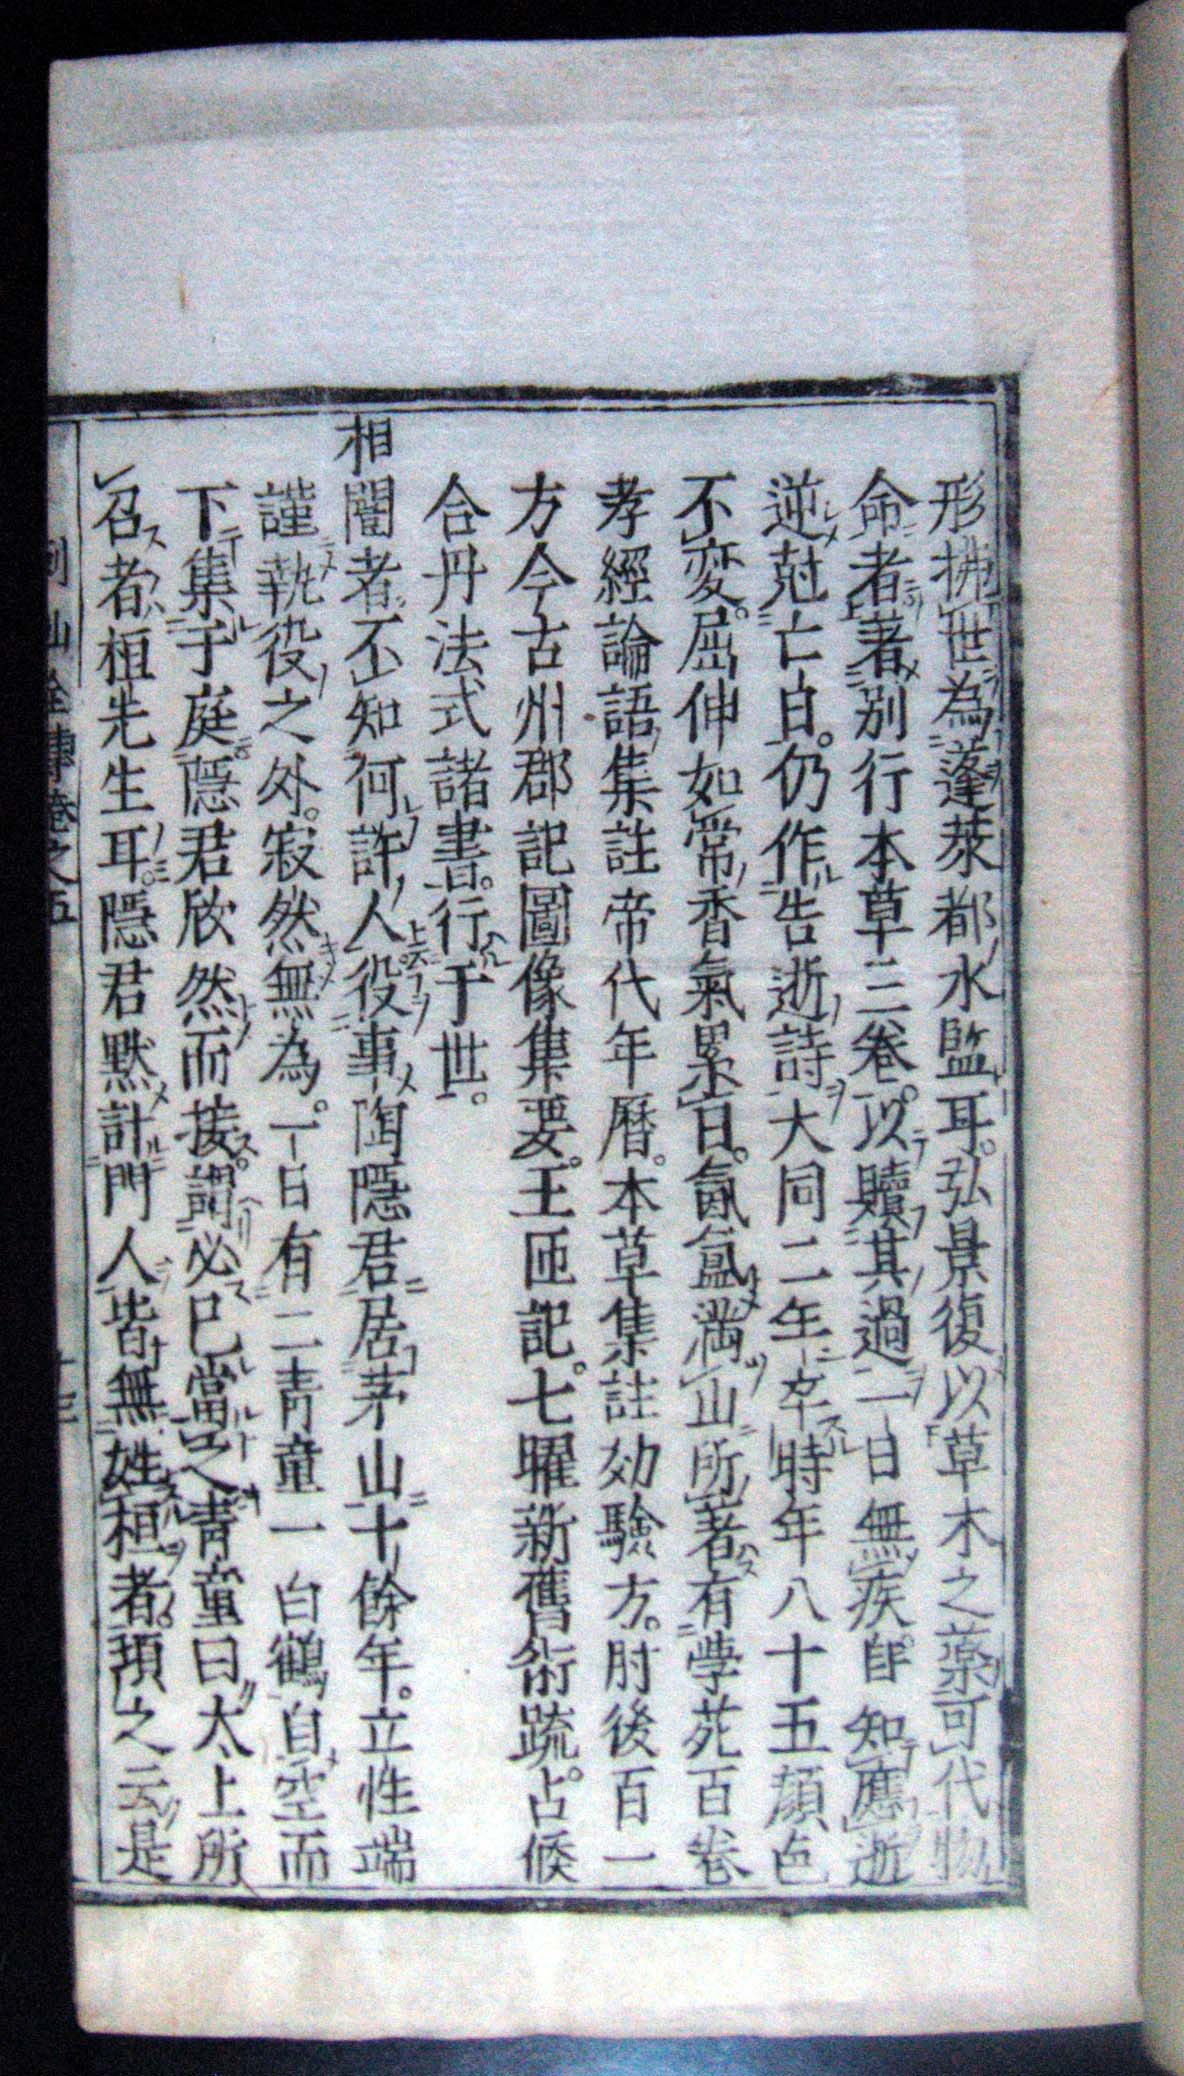 形拂世為蓬萊都水監耳弘景復以草木之藥可代物
命者著別行本草三卷以贖其過一日無疾自知應逝
逆尅亡日仍作告逝詩大同二年卒時年八十五顏色
不変屈伸如常香氣累日氤氳満山所著有學苑百卷
孝經論語集註帝代年曆本草集註効驗方肘後百一
方今古州郡記圖像集要玉匣記七曜新舊術䟽占候
合丹法式諸書行于世
相闓者不知何許人役事陶隱君居茅山十餘年立性端
謹執役之外寂然無為一日有二青童一白鶴自空而
下集于庭隱君欣然而接謂必已當之青童曰太上所
召者桓先生耳隱君默計門人皆無姓桓者頊之云是
列仙全傳卷之五